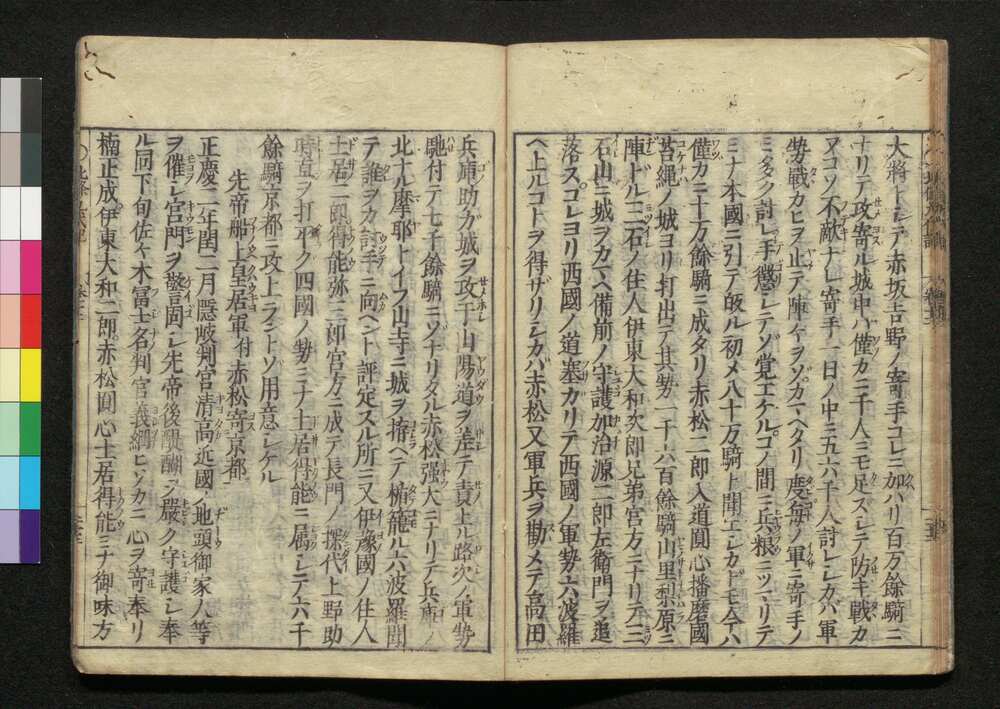 大將トシテ赤坂吉野ノ寄手コレニ加ハリ百万餘騎ニ
ナリテ攻寄ル城中ハ僅カニ千人ニモ足ズシテ防キ戰カ
フコソ不敵ナレ寄手一日ノ中ニ五六千人討レシカバ軍
勢戰カヒヲ止テ陣ケヲゾカマヘタリ度毎ノ軍ニ寄手ノ
ミ多ク討レ手懲シテゾ覚エケルコノ間ニ兵粮ニツマリテ
ミナ本國ニ引テ皈ル初メ八十万騎ト聞エシカドモ今ハ
僅カニ十万餘騎ニ成タリ赤松二郎入道圓心播磨國
苔繩ノ城ヨリ打出テ其勢一千六百餘騎山里梨原ニ
陣ドル三石ノ住人伊東大和次郎兄弟宮方ニナリテ三
石山ニ城ヲカマヘ備前ノ守護加治源二郎左衛門ヲ追
落スコレヨリ西國ノ道塞ガリテ西國ノ軍勢六波羅
ヘ上ルコトヲ得ザリシカバ赤松又軍兵ヲ勸メテ高田
兵庫助ガ城ヲ攻落シ山陽道ヲ差テ責上ル路次ノ軍勢
馳付テ七千餘騎ニゾナリタル赤松强大ニナリテ兵庫ノ
北ナル摩耶トイフ山寺ニ城ヲ拵ヘテ楯籠ル六波羅聞
テ誰ヲカ討手ニ向ヘント評定スル所ニ又伊豫國ノ住人
土居二郎得能弥三郎宮方ニ成テ長門ノ探代上野助
時直ヲ打平ク四國ノ勢ミナ土居得能ニ属シテ六千
餘騎京都ニ攻上ラントゾ用意シケル
先帝船上皇居軍付赤松寄京都
正慶二年閏二月隠岐判官清高近國ノ地頭御家人等
ヲ催シ宮門ヲ警固シ先帝後醍醐ヲ嚴ク守護シ奉
ル同下旬佐々木冨士名判官義綱ヒソカニ心ヲ寄奉リ
楠正成伊東大和二郎赤松圓心土居得能ミナ御味方